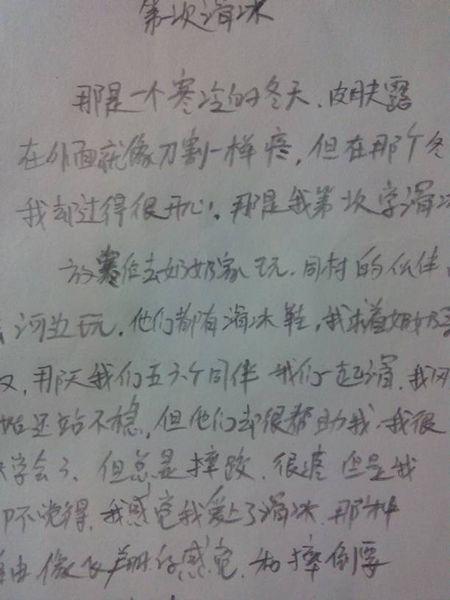 第次滑冰
那是一个寒冷的冬天、皮肤露
在外面就像刀割一样疼,但在那个冬
我却过得很开心。那是我第次学滑冰
放寒假去奶奶家玩.同村的伙伴
河边玩.他们都有滑冰鞋,我求着奶奶
又,那天我们五六个同伴 我们一起滑.我刚
始还站不稳,但他们却很帮助我.我很
快学会了、但总是摔跤.很疼 但是我
却不觉得.我感觉我爱上了滑冰.那种
自由像飞翔的感觉.和摔倒